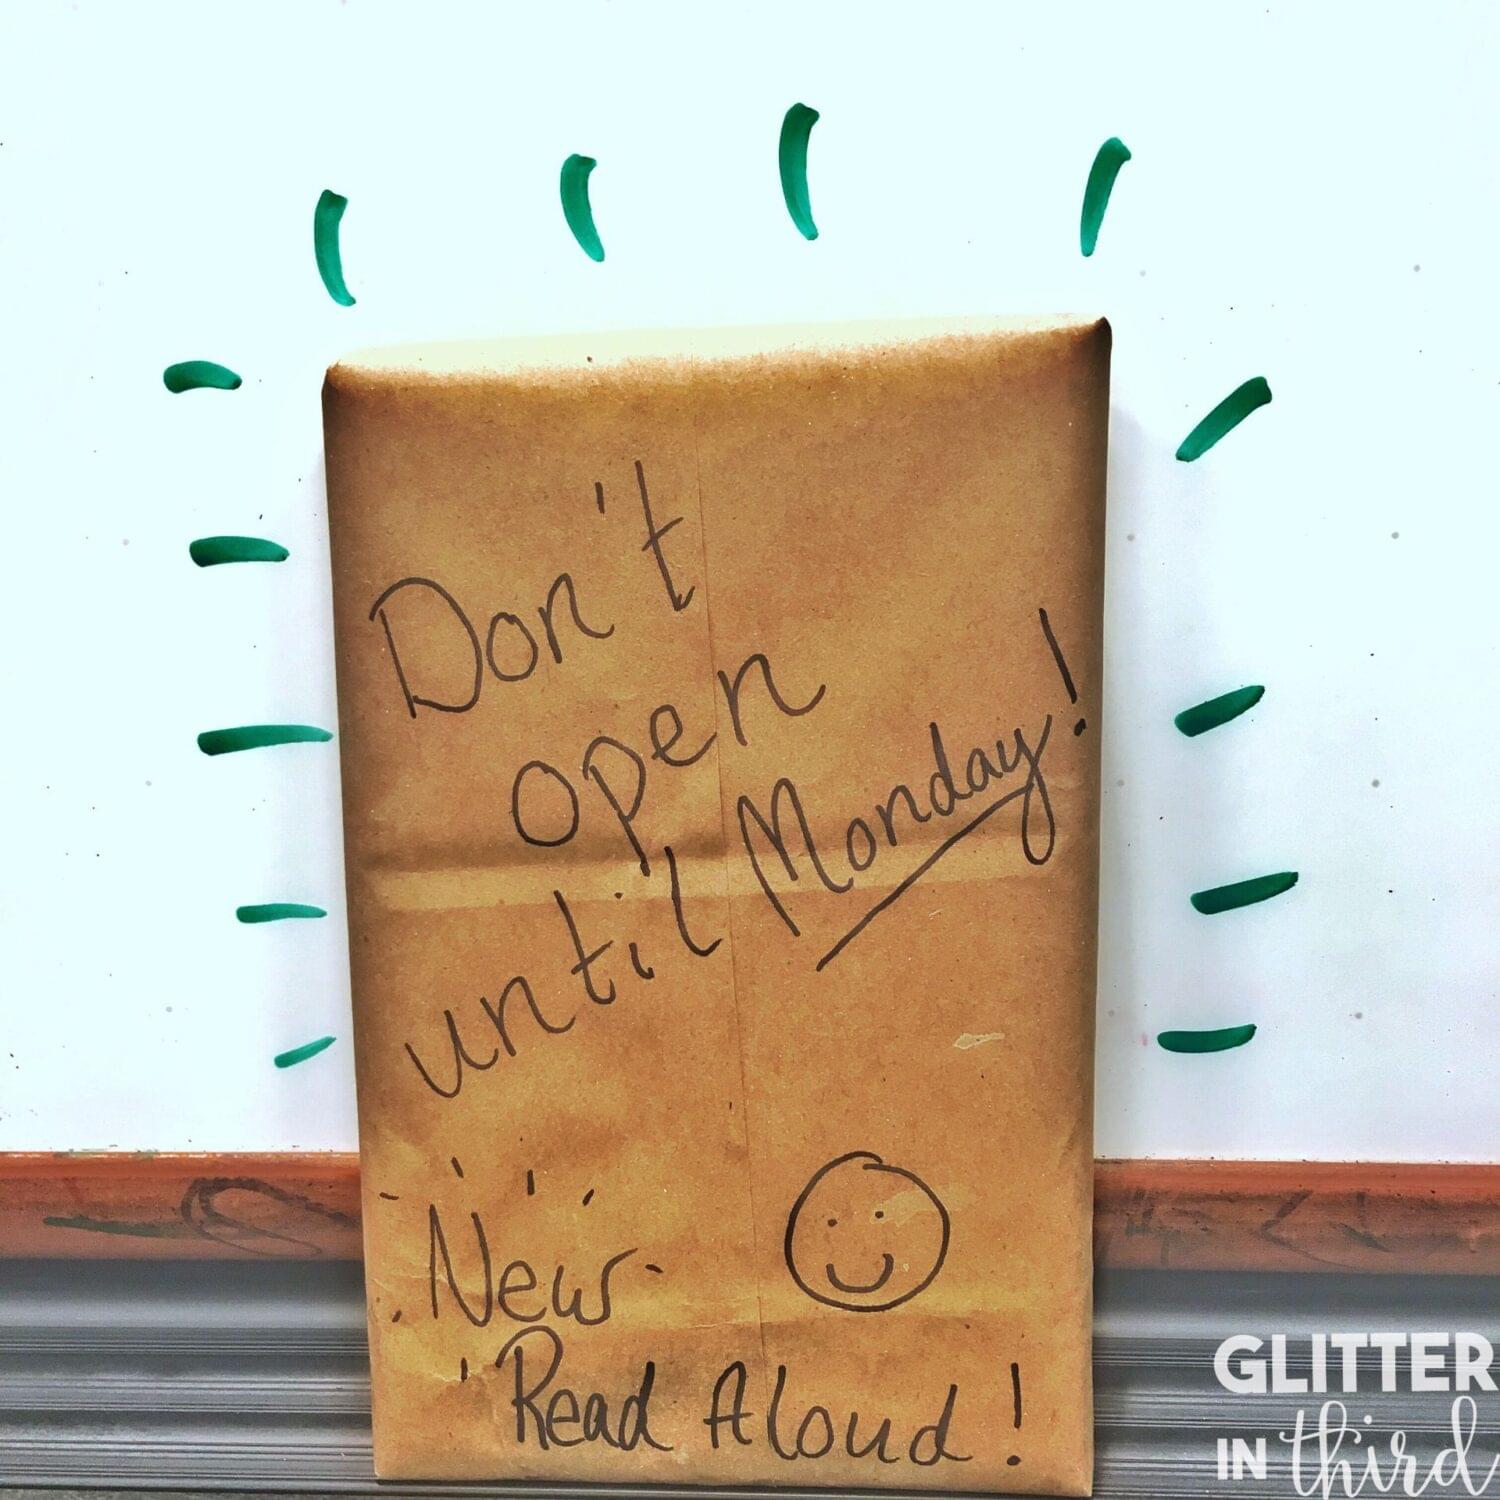 Don't
open
until Monday!
New
Read Aloud!
GLITTER
IN third